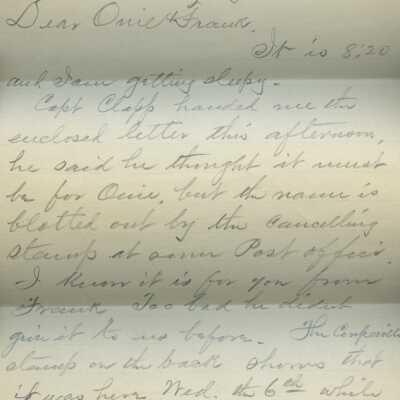 Dear Onie & Frank.
It is 8:20
and I am getting sleepy.
Capt Clapp handed me the
enclosed letter this afternoon,
he said he thought it must
be for Onie, but the name is
blotted out by the cancelling
stamp at some Post office.
I know it is for you from
Frank Too bad he didnt
give it to us before. The
stamp on the back shows that
it was here Wed. the 6th while